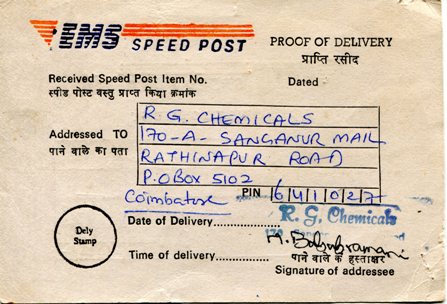 EMS SPEED POST
PROOF OF DELIVERY
प्राप्ति रसीद
Received Speed Post Item No.
Dated
स्पीड पोस्ट वस्तु प्राप्त किया क्रमांक
Addressed TO
पाने वाले का पता
R. G. CHEMICALS
170-A- SANGANUR MAIL
RATHINAPUR ROAD
P.O BOX 5102
Coimbatore
PIN 641027
Dely
Stamp
Date of Delivery
R. G. Chemicals
Time of delivery
पाने वाले के हस्ताक्षर
Signature of addressee